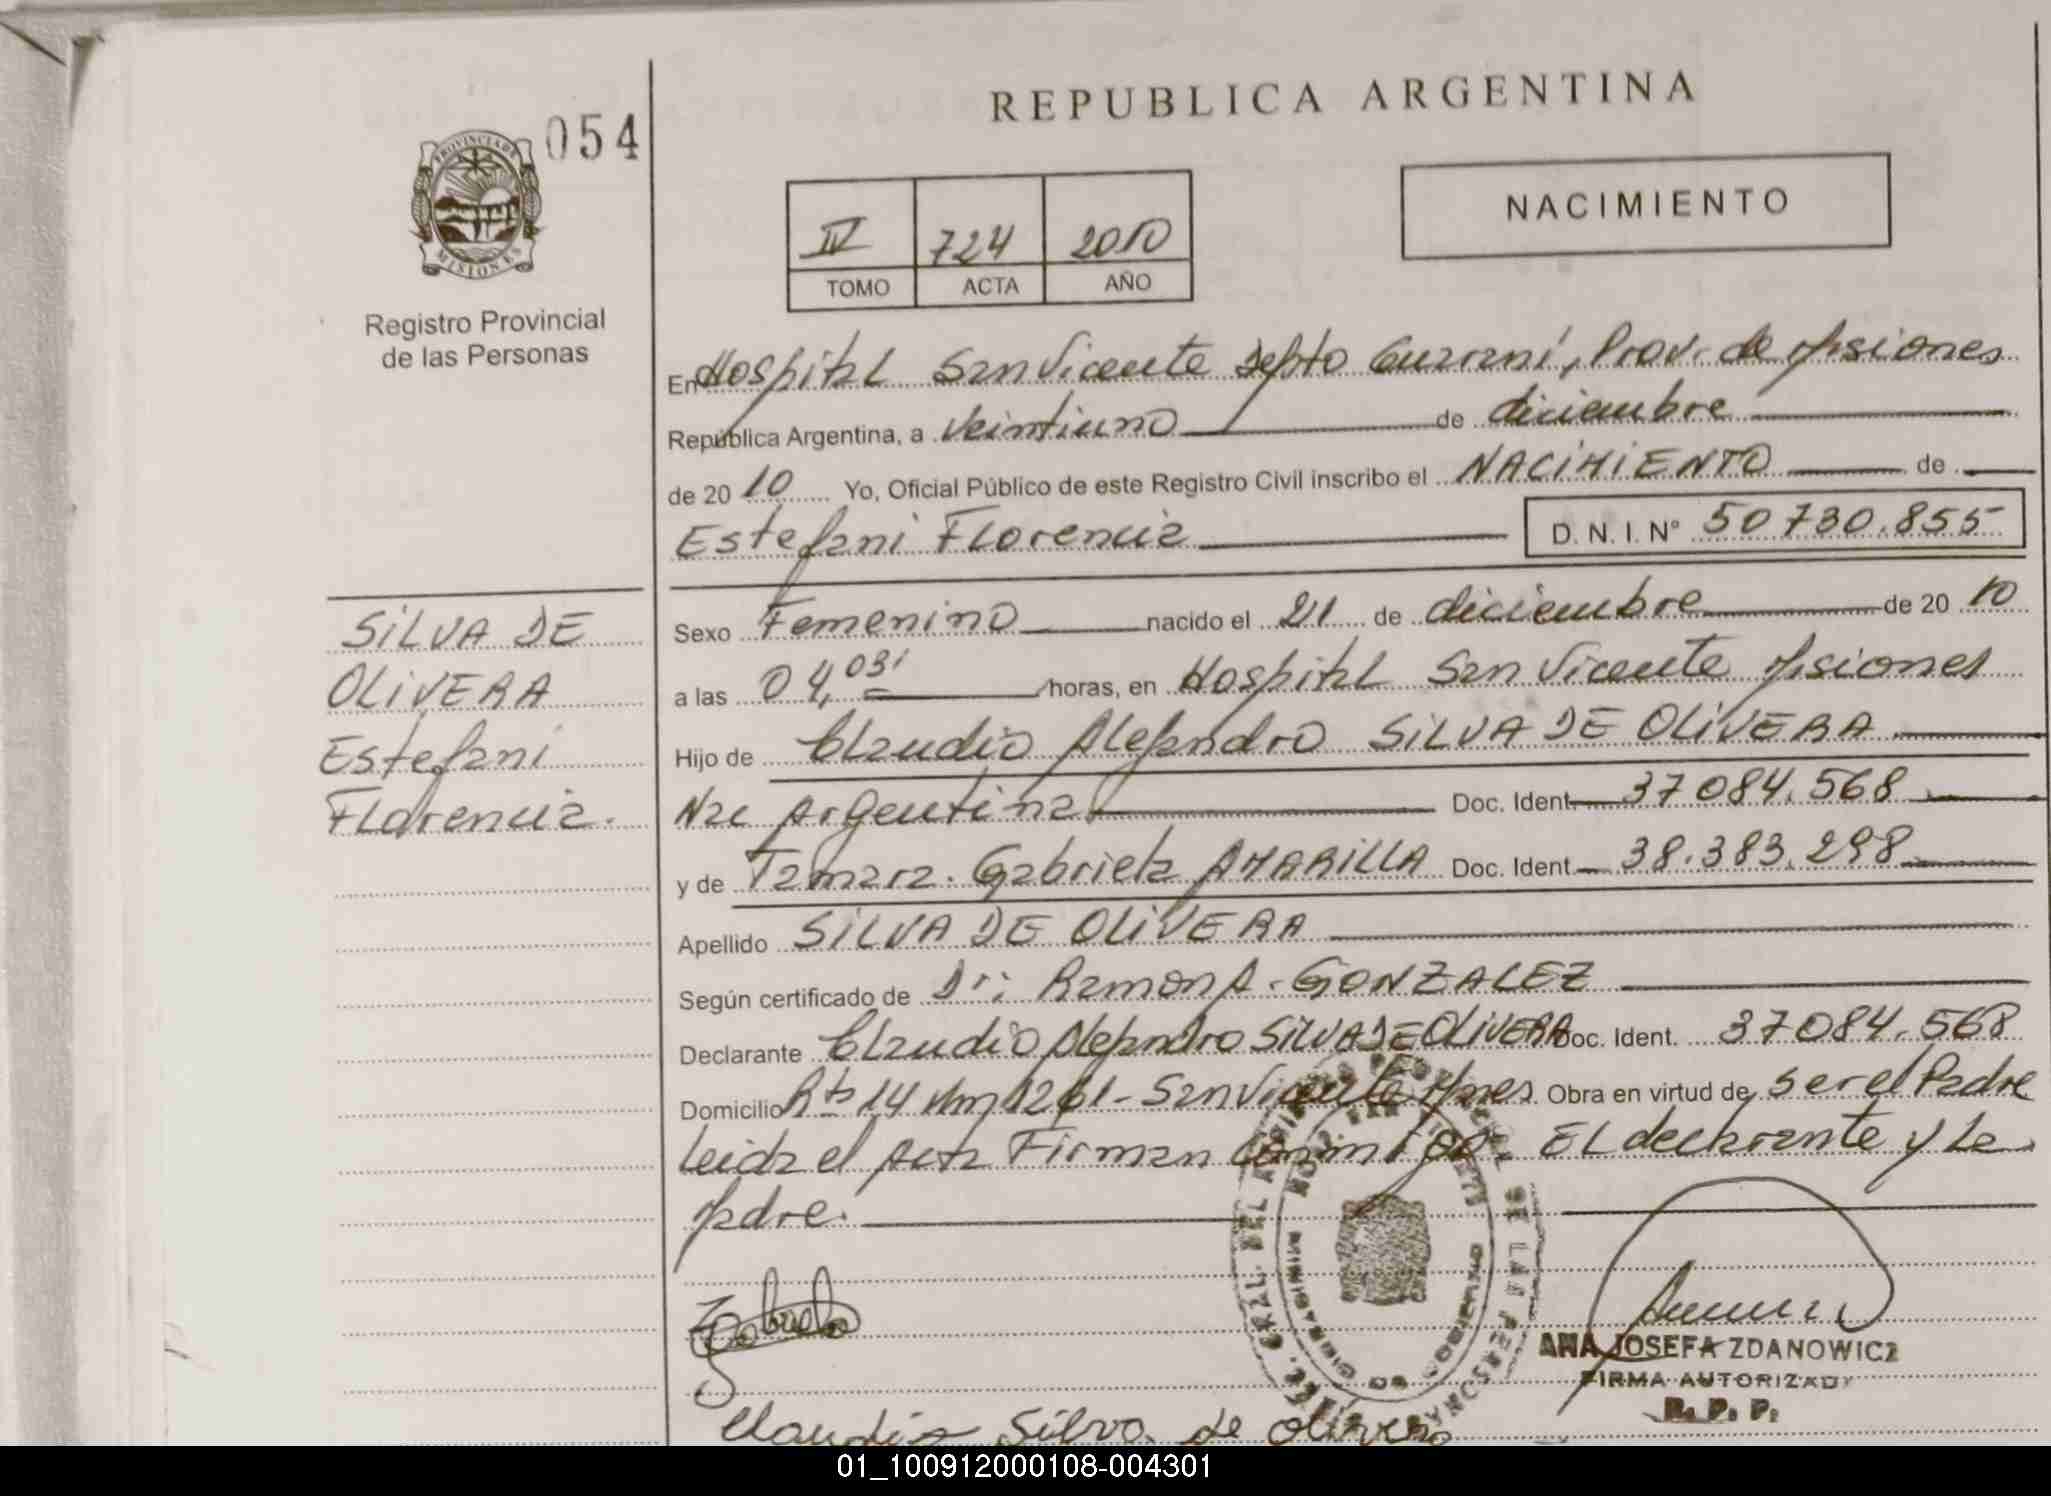 REPUBLICA ARGENTINA
054
PROVINCIA DE
MISIONES
Registro Provincial
de las Personas
NACIMIENTO
IV 724 2010
TOMO ACTA AÑO
En Hospital San Vicente Depto Guarani, Prov. de Misiones
República Argentina, a veintiuno de diciembre
de 20 10 Yo, Oficial Público de este Registro Civil inscribo el NACIMIENTO de
Estefani Florencia D. N. I. Nº 50 730.855
SILVA DE
OLIVERA
Estefani
Florencia.
Sexo Femenino nacido el 21 de diciembre de 20 10
a las 04,03' horas, en Hospital San Vicente Misiones
Hijo de Claudio Alejandro SILVA DE OLIVERA
Nac Argentina Doc. Ident 37 084.568
y de Tamara. Gabriela AMARILLA Doc. Ident 38.383.298
Apellido SILVA DE OLIVERA
Según certificado de Dr: Ramon A. GONZALEZ
Declarante Claudio Alejandro SILVA DE OLIVERA Doc. Ident. 37 084.568
Domicilio Rta 14 Km 1261 - San Vicente Mnes Obra en virtud de ser el Padre
Leida el Acta Firman conmigo. El declarante y La
Madre.
Claudio Silva de Olivera
ANA JOSEFA ZDANOWICZ
FIRMA AUTORIZADA
R. P. P.
01_100912000108-004301